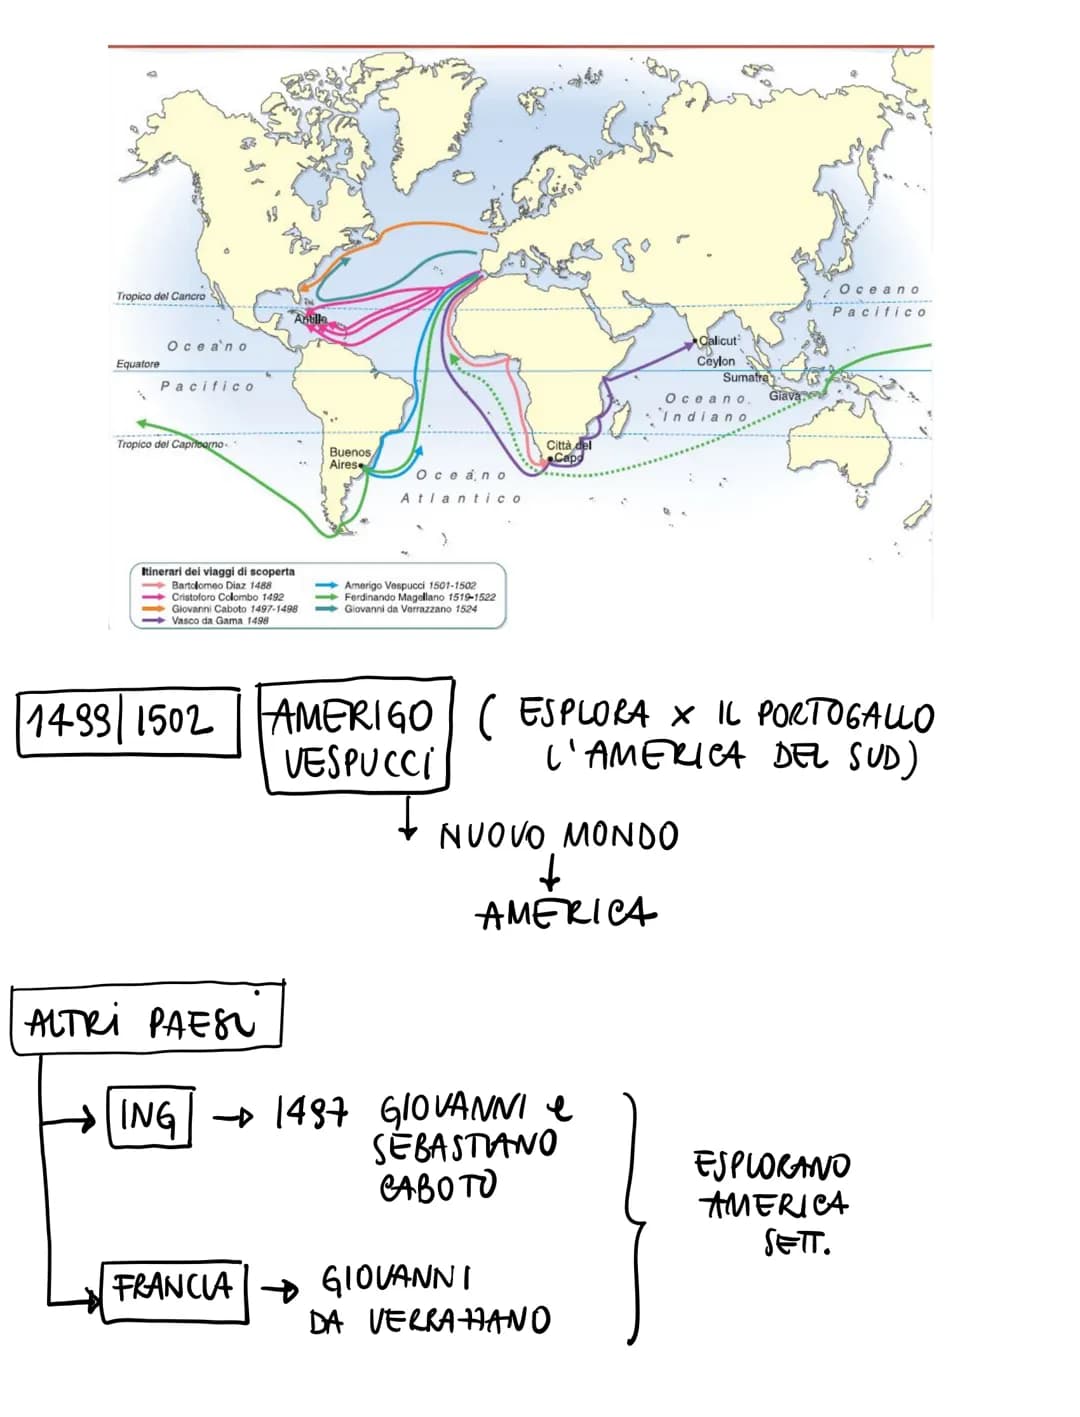 Tropico del Cancro
Antille
Oceano
Pacifico
Equatore
Oceano
Pacifico
Calicut
Ceylon
Sumatra
Giava
Oceano
Indiano
Tropico del Capricorno
Buenos
Aires
Città del
Capo
Oceano
Atlantico
Itinerari dei viaggi di scoperta
Bartolomeo Diaz 1488
Cristoforo Colombo 1492
Giovanni Caboto 1497-1498
Vasco da Gama 1498
Amerigo Vespucci 1501-1502
Ferdinando Magellano 1519-1522
Giovanni da Verrazzano 1524
1499|1502 AMERIGO VESPUCCI ( ESPLORA X IL PORTOGALLO
L'AMERICA DEL SUD)
NUOVO MONDO
AMERICA
ALTRI PAESI
ING → 1497 GIOVANNI e
SEBASTIANO
CABOTO
FRANCIA → GIOVANNI
DA VERRAZZANO
ESPLORANO
AMERICA
SETT.